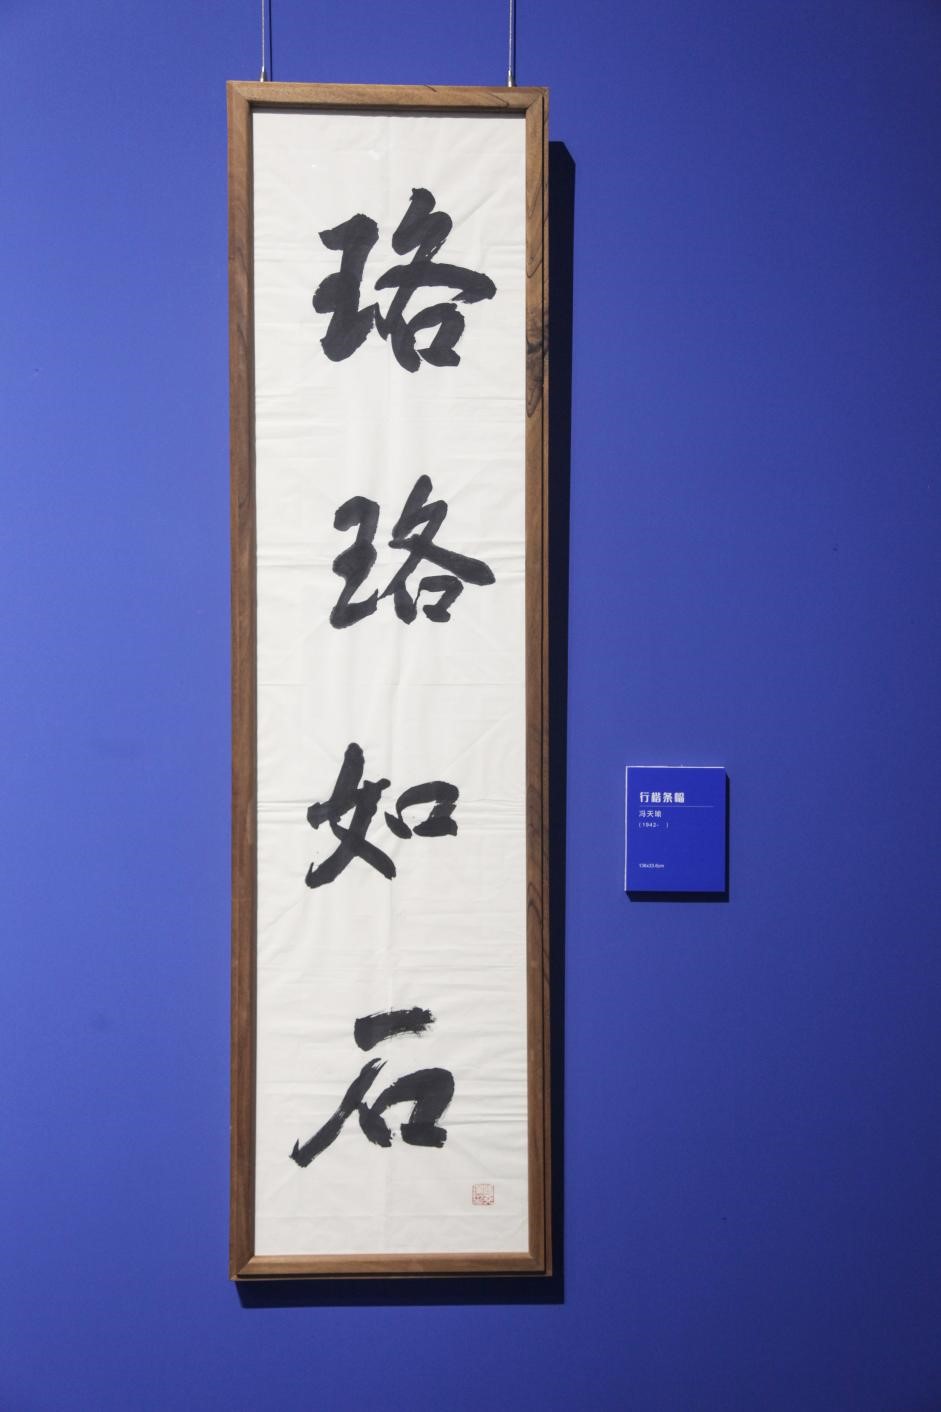 珞
珞
如
石
行楷条幅
冯天瑜
(1942- )
136x33.6cm